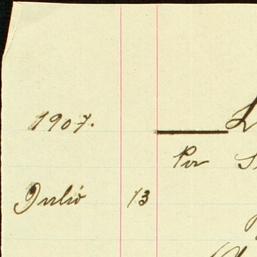 1907.
Por
Julio 13